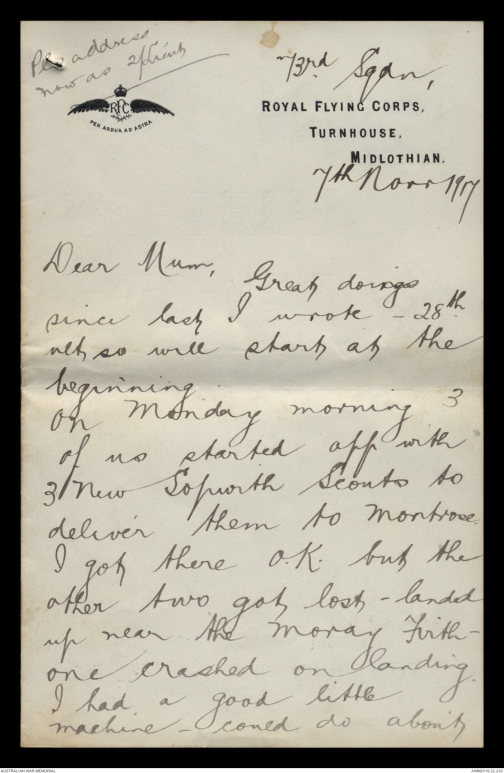 Pls address
now as 2/Lieut
73rd Sqdn,
RFC
PER ARDUA AD ASTRA
ROYAL FLYING CORPS,
TURNHOUSE,
MIDLOTHIAN.
7th Novr 1917
Dear Mum,
Great doings
since last I wrote - 28th
ult, so will start at the
beginning.
On Monday morning 3
of us started off with
3 New Sopwith Scouts to
deliver them to Montrose.
I got there O.K. but the
other two got lost - landed
up near the Moray Firth -
one crashed on landing.
I had a good little
machine - could do about
AUSTRALIAN WAR MEMORIAL